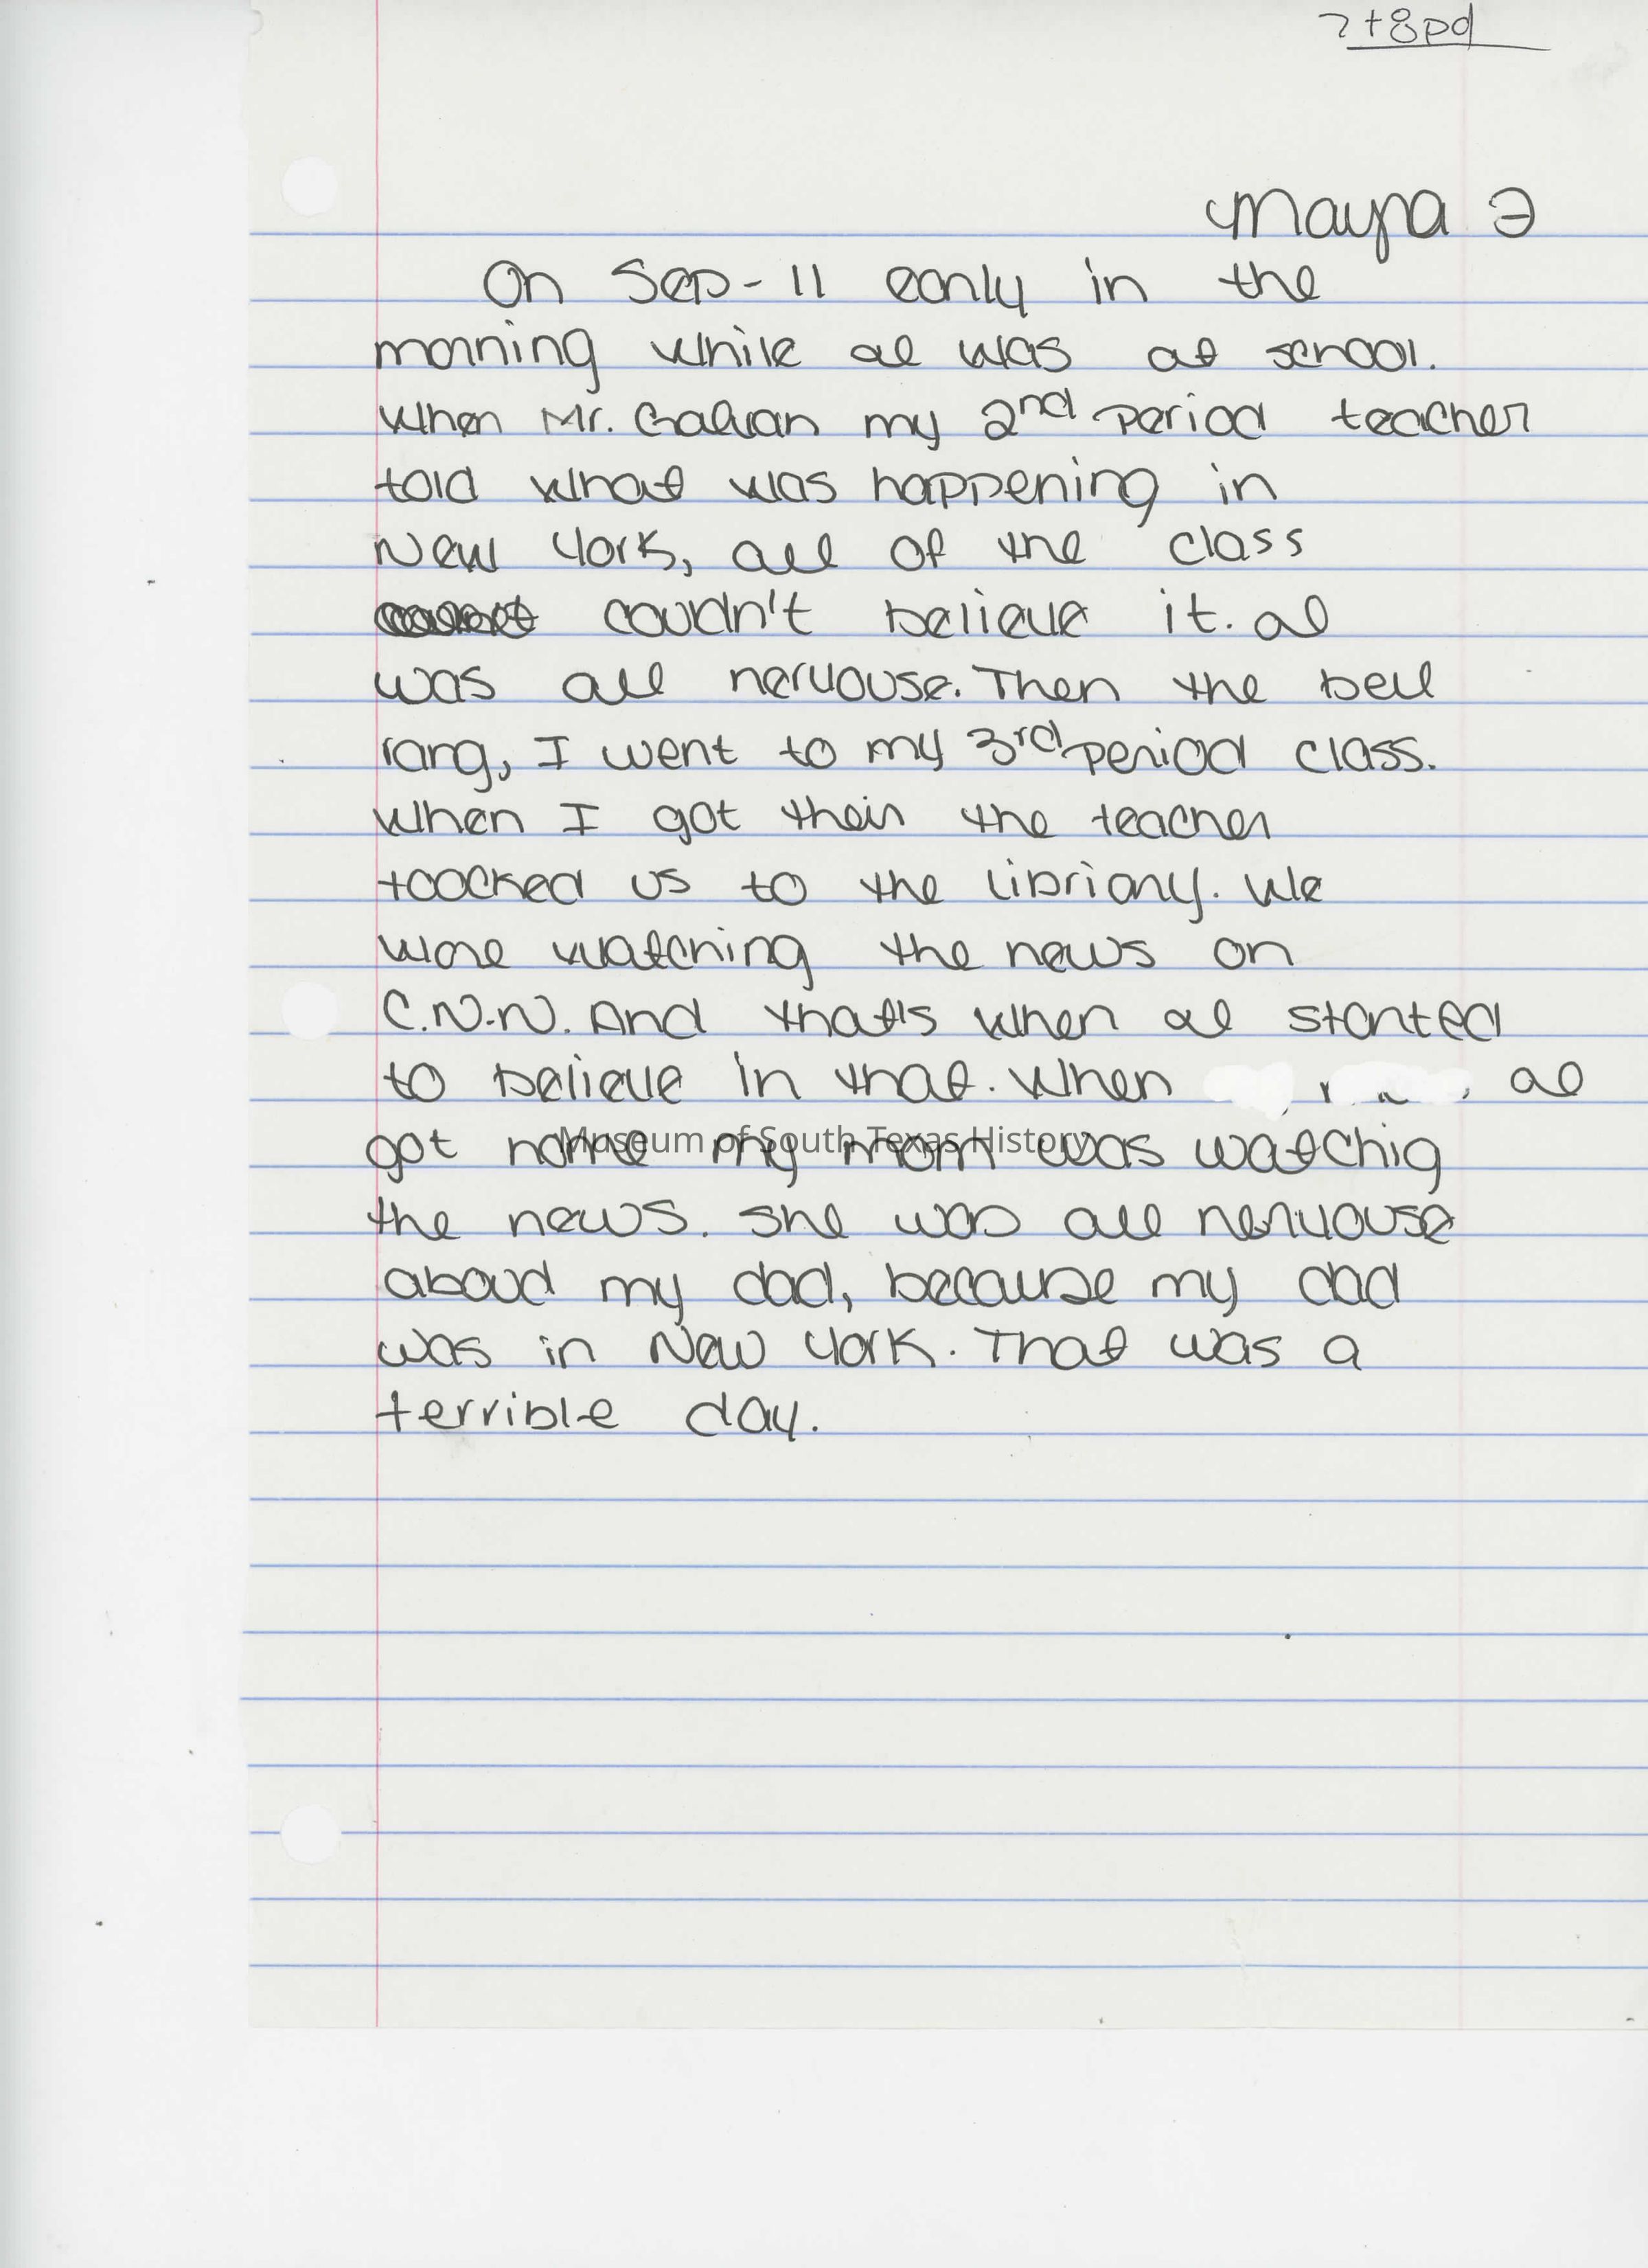 7+8pd
Mayra J
On Sep-11 early in the
morning while I was at school.
When Mr. Galvan my 2nd period teacher
told what was happening in
New York, all of the class
coudn't believe it. I
was all nervouse. Then the bell
rang, I went to my 3rd period class.
When I got their the teacher
toocked us to the libriary. We
were watching the news on
C.N.N. And that's when I started
to believe in that. When I
got home my mom was watchig
Museum of South Texas History
the news. She was all nervouse
aboud my dad, because my dad
was in New York. That was a
terrible day.